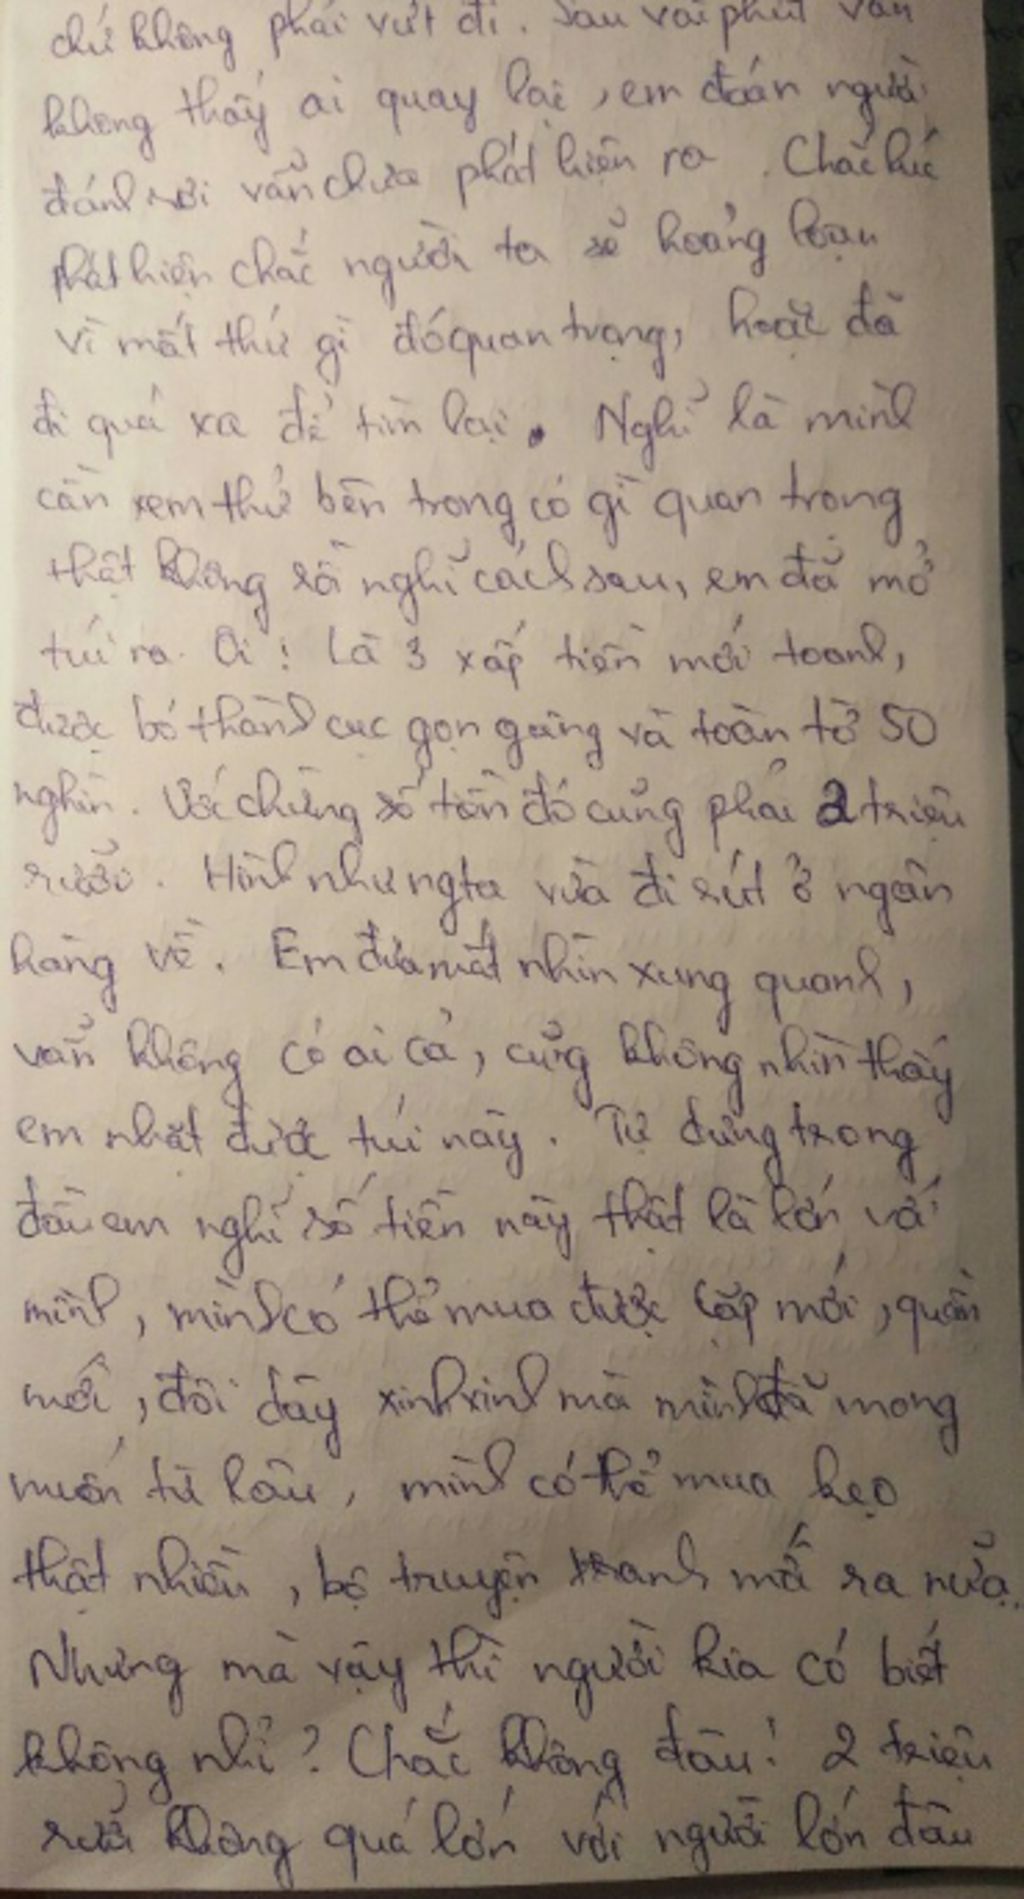 chứ không phải vứt đi. Sau vài phút vẫn
không thấy ai quay lại, em đoán người
đánh rơi vẫn chưa phát hiện ra. Chắc lúc
phát hiện chắc người ta sẽ hoảng loạn
vì mất thứ gì đó quan trọng, hoặc đã
đi quá xa để tìm lại. Nghĩ là mình
cần xem thử bên trong có gì quan trọng
thật không rồi nghĩ cách sau, em đã mở
túi ra. Ôi! Là 3 xấp tiền mới toanh,
được bó thành cục gọn gàng và toàn tờ 50
nghìn. Với chừng số tiền đó cũng phải 2 triệu
rưỡi. Hình như ngta vừa đi rút ở ngân
hàng về. Em đưa mắt nhìn xung quanh,
vẫn không có ai cả, cũng không nhìn thấy
em nhặt được túi này. Tự dưng trong
đầu em nghĩ số tiền này thật là lớn với
mình, mình có thể mua được cặp mới, quần
mới, đôi dày xinh xinh mà mình đã mong
muốn từ lâu, mình có thể mua kẹo
thật nhiều, bộ truyện tranh mới ra nữa.
Nhưng mà vậy thì người kia có biết
không nhỉ? Chắc không đâu! 2 triệu
rưỡi không quá lớn với người lớn đâu